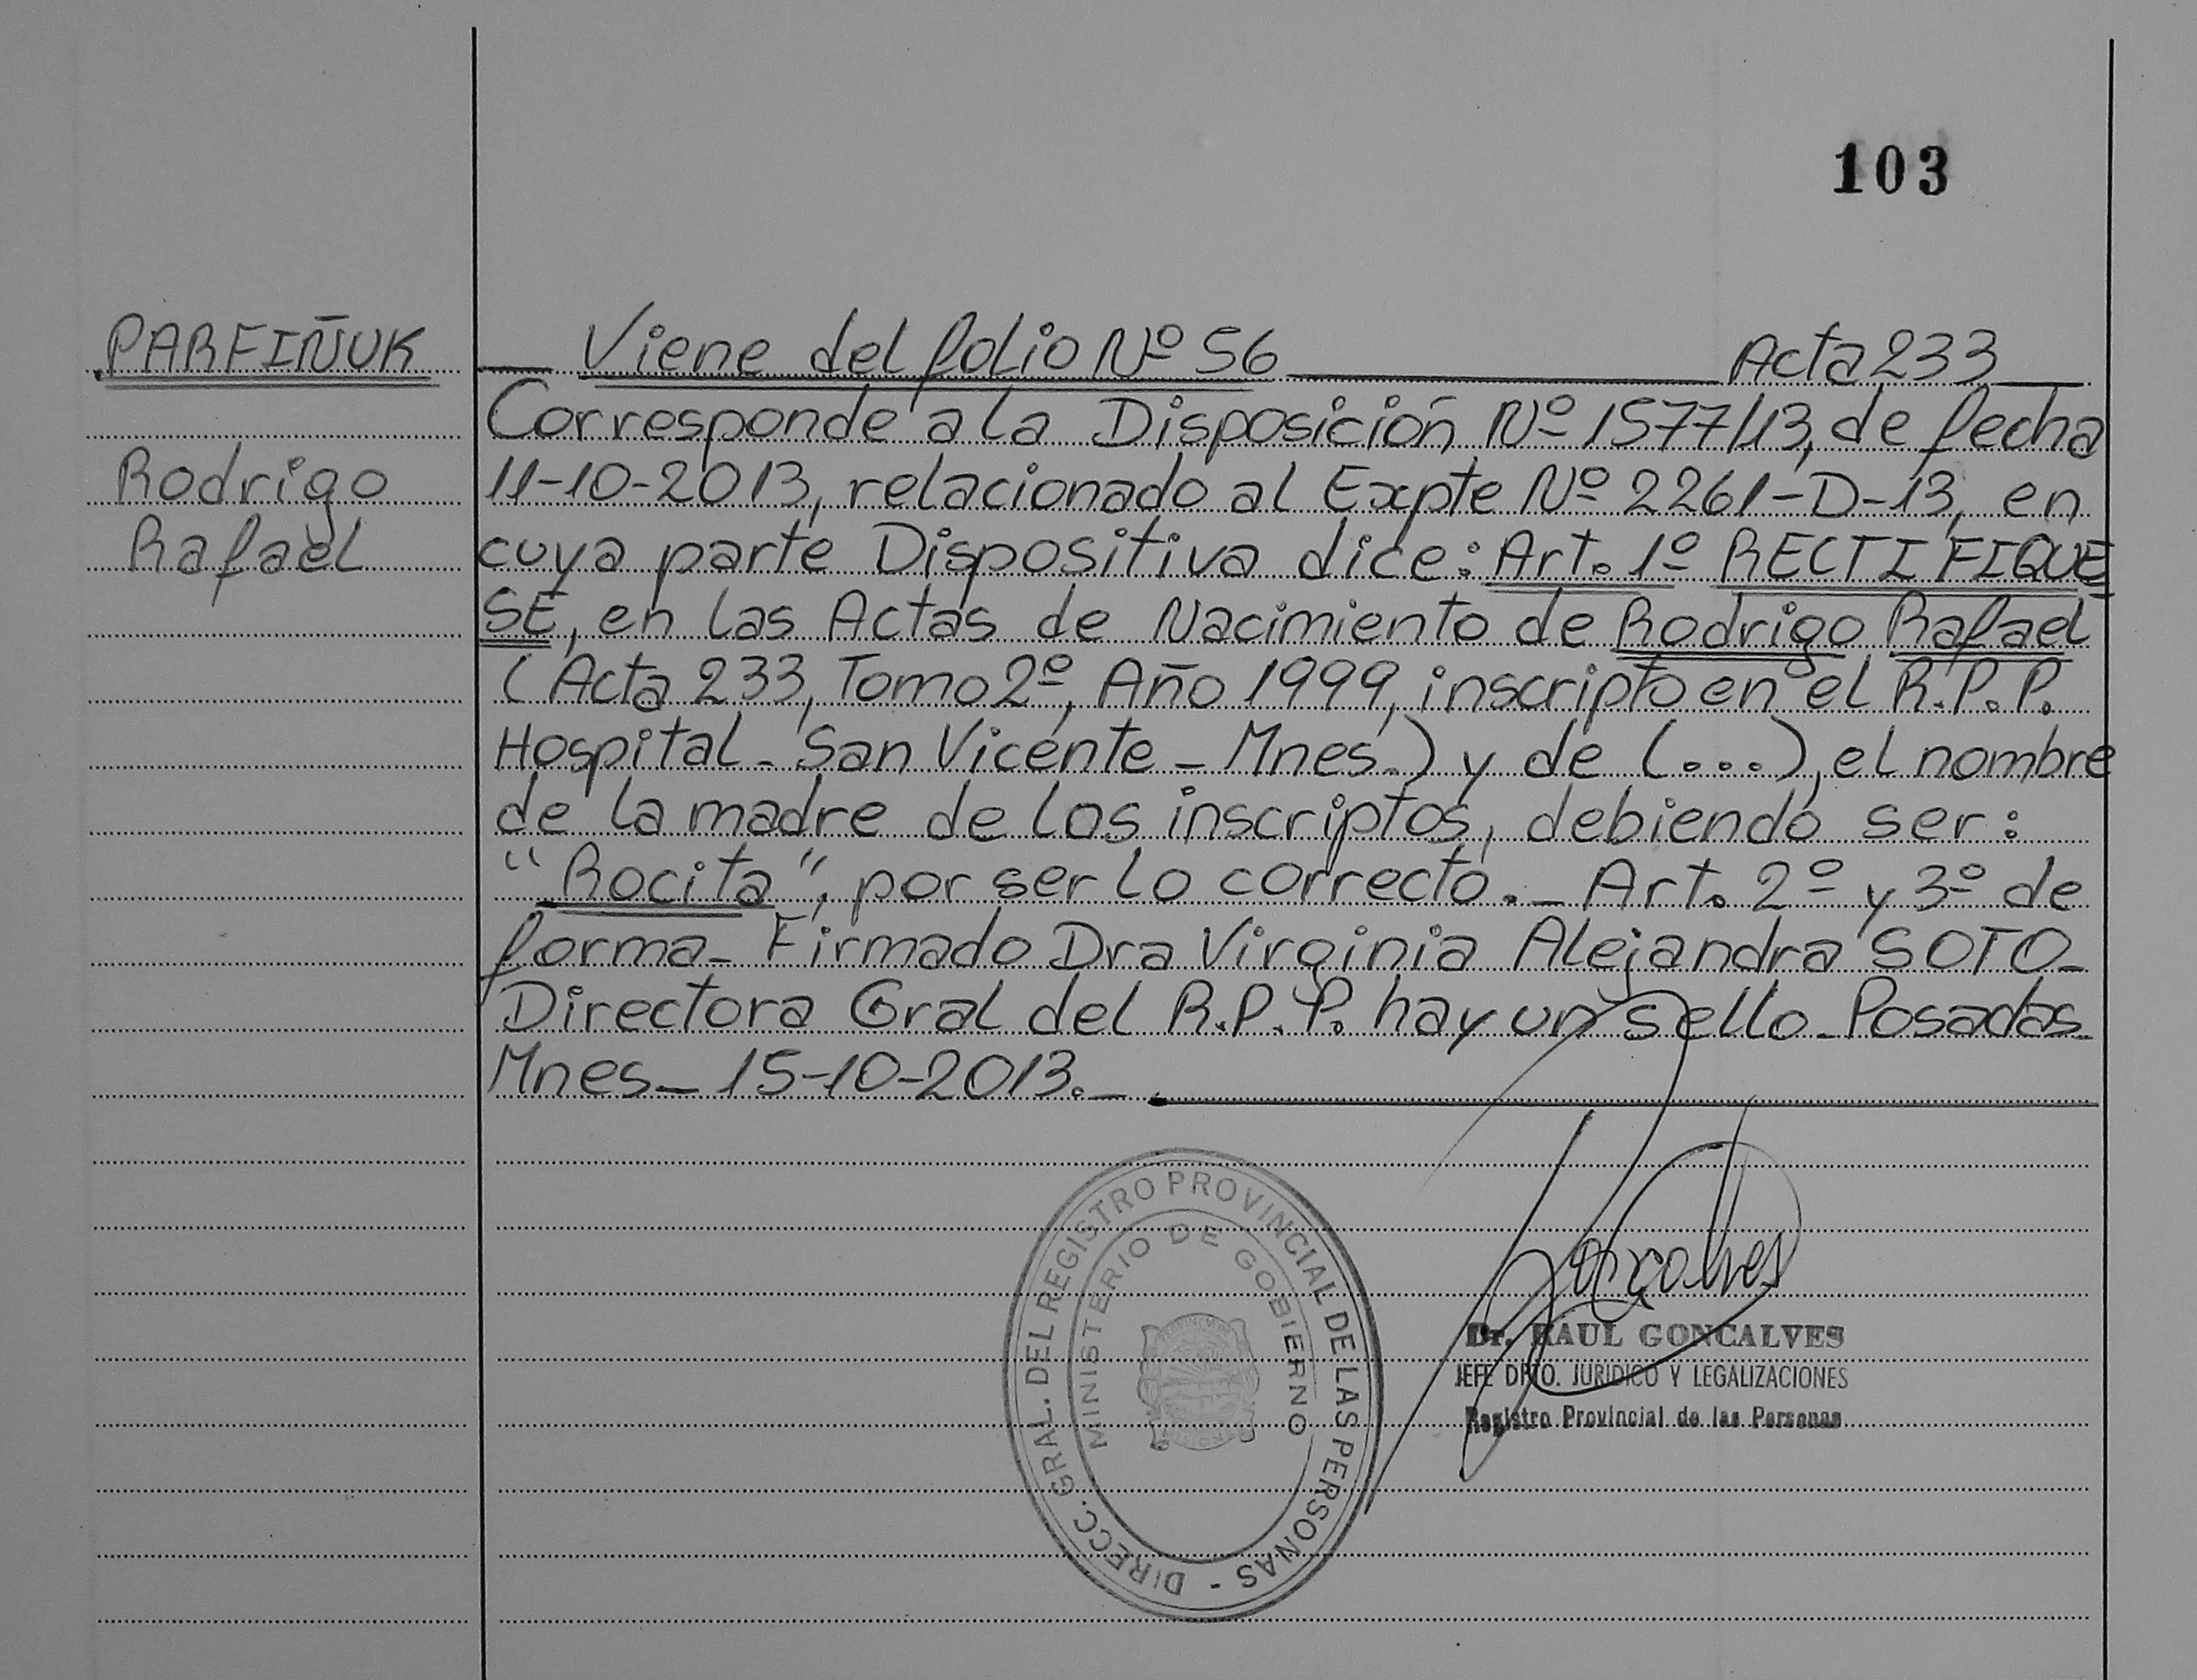 103
PARFIÑUK
Rodrigo
Rafael
Viene del folio Nº 56 Acta 233
Corresponde a la Disposición Nº 1577/13, de fecha
11-10-2013, relacionado al Expte Nº 2261-D-13, en
cuya parte Dispositiva dice: Art. 1º RECTIFIQUE
SE, en las Actas de Nacimiento de Rodrigo Rafael
(Acta 233, Tomo 2º, Año 1999, inscripto en el R.P.P.
Hospital - San Vicente - Mnes.) y de (...), el nombre
de la madre de los inscriptos, debiendo ser:
"Rocita", por ser lo correcto. - Art. 2º y 3º de
forma - Firmado Dra Virginia Alejandra SOTO -
Directora Gral del R.P.P. hay un sello - Posadas
Mnes - 15-10-2013. -
DIRECC. GRAL. DEL REGISTRO PROVINCIAL DE LAS PERSONAS -
MINISTERIO DE GOBIERNO
Gonçalves
Dr. RAUL GONCALVES
JEFE DPTO. JURIDICO Y LEGALIZACIONES
Registro Provincial de las Personas